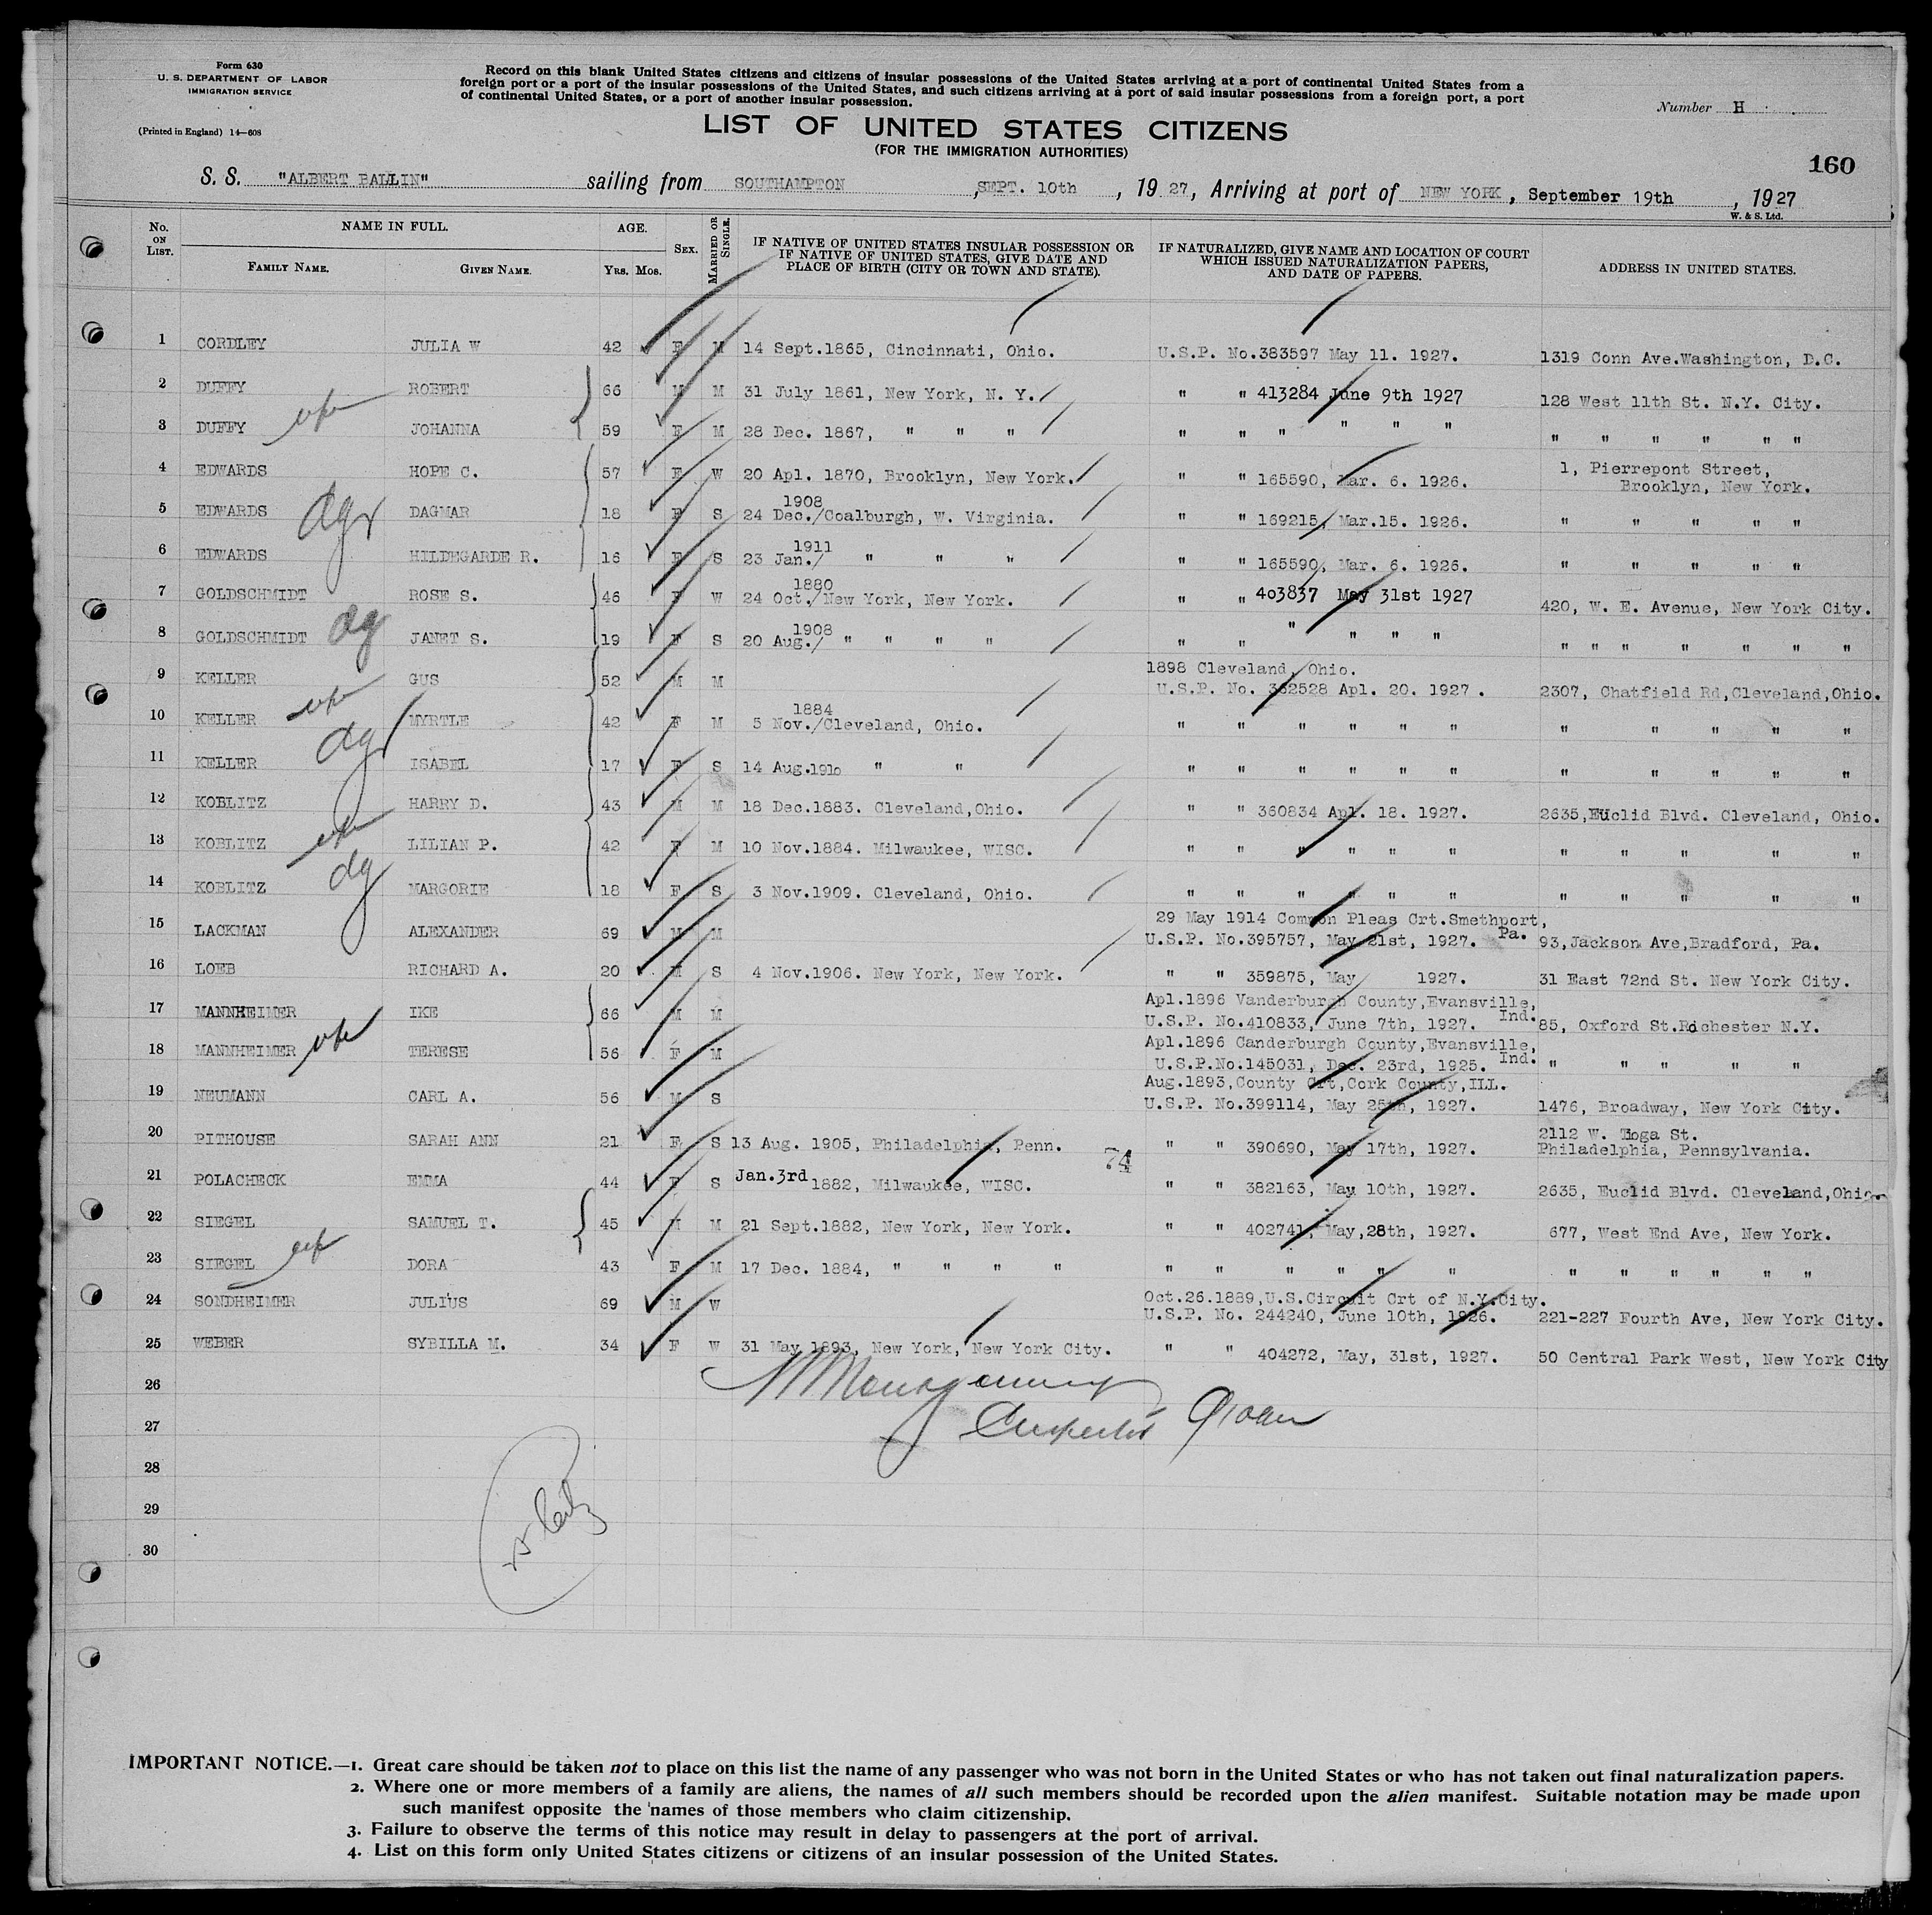 Form 630
U. S. DEPARTMENT OF LABOR
IMMIGRATION SERVICE
(Printed in England) 14—608
Record on this blank United States citizens and citizens of insular possessions of the United States arriving at a port of continental United States from a
foreign port or a port of the insular possessions of the United States, and such citizens arriving at a port of said insular possessions from a foreign port, a port
of continental United States, or a port of another insular possession.
Number H
LIST OF UNITED STATES CITIZENS
(FOR THE IMMIGRATION AUTHORITIES)
160
S. S. "ALBERT BALLIN" sailing from SOUTHAMPTON, SEPT. 10th, 1927, Arriving at port of NEW YORK, September 19th, 1927
W. & S. Ltd.
No. ON LIST. NAME IN FULL. FAMILY NAME. GIVEN NAME. AGE. Yrs. Mos. SEX. MARRIED OR SINGLE. IF NATIVE OF UNITED STATES INSULAR POSSESSION OR IF NATIVE OF UNITED STATES, GIVE DATE AND PLACE OF BIRTH (CITY OR TOWN AND STATE). IF NATURALIZED, GIVE NAME AND LOCATION OF COURT WHICH ISSUED NATURALIZATION PAPERS, AND DATE OF PAPERS. ADDRESS IN UNITED STATES.
1 CORDLEY JULIA W 42 F M 14 Sept.1865, Cincinnati, Ohio. U.S.P. No.383597 May 11. 1927. 1319 Conn Ave.Washington, D.C.
2 DUFFY ROBERT 66 M M 31 July 1861, New York, N. Y. " " 413284 June 9th 1927 128 West 11th St. N.Y. City.
3 DUFFY JOHANNA 59 F M 28 Dec. 1867, " " " " " " " " " " " " " " "
4 EDWARDS HOPE C. 57 F W 20 Apl. 1870, Brooklyn, New York. " " 165590, Mar. 6. 1926. 1, Pierrepont Street, Brooklyn, New York.
5 EDWARDS DAGMAR 18 F S 24 Dec./1908 Coalburgh, W. Virginia. " " 169215, Mar.15. 1926. " " " " "
6 EDWARDS HILDEGARDE R. 16 F S 23 Jan./1911 " " " " " 165590, Mar. 6. 1926. " " " " "
7 GOLDSCHMIDT ROSE S. 46 F W 24 Oct./1880 New York, New York. " " 403837 May 31st 1927 420, W. E. Avenue, New York City.
8 GOLDSCHMIDT JANET S. 19 F S 20 Aug./1908 " " " " " " " " " " " " " " " " "
9 KELLER GUS 52 M M 1898 Cleveland, Ohio. U.S.P. No. 362528 Apl. 20. 1927. 2307, Chatfield Rd,Cleveland,Ohio.
10 KELLER MYRTLE 42 F M 5 Nov./1884 Cleveland, Ohio. " " " " " " " " " " "
11 KELLER ISABEL 17 F S 14 Aug.1910 " " " " " " " " " " " " "
12 KOBLITZ HARRY D. 43 M M 18 Dec.1883. Cleveland,Ohio. " " 360834 Apl. 18. 1927. 2635,Euclid Blvd. Cleveland, Ohio.
13 KOBLITZ LILIAN P. 42 F M 10 Nov.1884. Milwaukee, WISC. " " " " " " " " " " "
14 KOBLITZ MARGORIE 18 F S 3 Nov.1909. Cleveland, Ohio. " " " " " " " " " " "
15 LACKMAN ALEXANDER 69 M M 29 May 1914 Common Pleas Crt.Smethport, Pa. U.S.P. No.395757, May 21st, 1927. 93,Jackson Ave,Bradford, Pa.
16 LOEB RICHARD A. 20 M S 4 Nov.1906. New York, New York. " " 359875, May 1927. 31 East 72nd St. New York City.
17 MANNHEIMER IKE 66 M M Apl.1896 Vanderburgh County,Evansville, Ind. U.S.P. No.410833, June 7th, 1927. 85, Oxford St.Rochester N.Y.
18 MANNHEIMER TERESE 56 F M Apl.1896 Canderburgh County,Evansville, Ind. U.S.P.No.145031, Dec. 23rd, 1925. " " " " "
19 NEUMANN CARL A. 56 M S Aug.1893,County Crt,Cork County,ILL. U.S.P. No.399114, May 25th, 1927. 1476, Broadway, New York City.
20 PITHOUSE SARAH ANN 21 F S 13 Aug. 1905, Philadelphia, Penn. " " 390690, May 17th, 1927. 2112 W. Tioga St. Philadelphia, Pennsylvania.
74
21 POLACHECK EMMA 44 F S Jan.3rd 1882, Milwaukee, WISC. " " 382163, May 10th, 1927. 2635, Euclid Blvd. Cleveland,Ohio.
22 SIEGEL SAMUEL T. 45 M M 21 Sept.1882, New York, New York. " " 402741, May,28th, 1927. 677, West End Ave, New York.
23 SIEGEL DORA 43 F M 17 Dec. 1884, " " " " " " " " " " " " " " " "
24 SONDHEIMER JULIUS 69 M W Oct.26.1889,U.S.Circuit Crt of N.Y.City. U.S.P. No. 244240, June 10th, 1926. 221-227 Fourth Ave, New York City.
25 WEBER SYBILLA M. 34 F W 31 May 1893, New York, New York City. " " 404272, May, 31st, 1927. 50 Central Park West, New York City
26
27
28
29
30
IMPORTANT NOTICE.—1. Great care should be taken not to place on this list the name of any passenger who was not born in the United States or who has not taken out final naturalization papers.
2. Where one or more members of a family are aliens, the names of all such members should be recorded upon the alien manifest. Suitable notation may be made upon
such manifest opposite the names of those members who claim citizenship.
3. Failure to observe the terms of this notice may result in delay to passengers at the port of arrival.
4. List on this form only United States citizens or citizens of an insular possession of the United States.